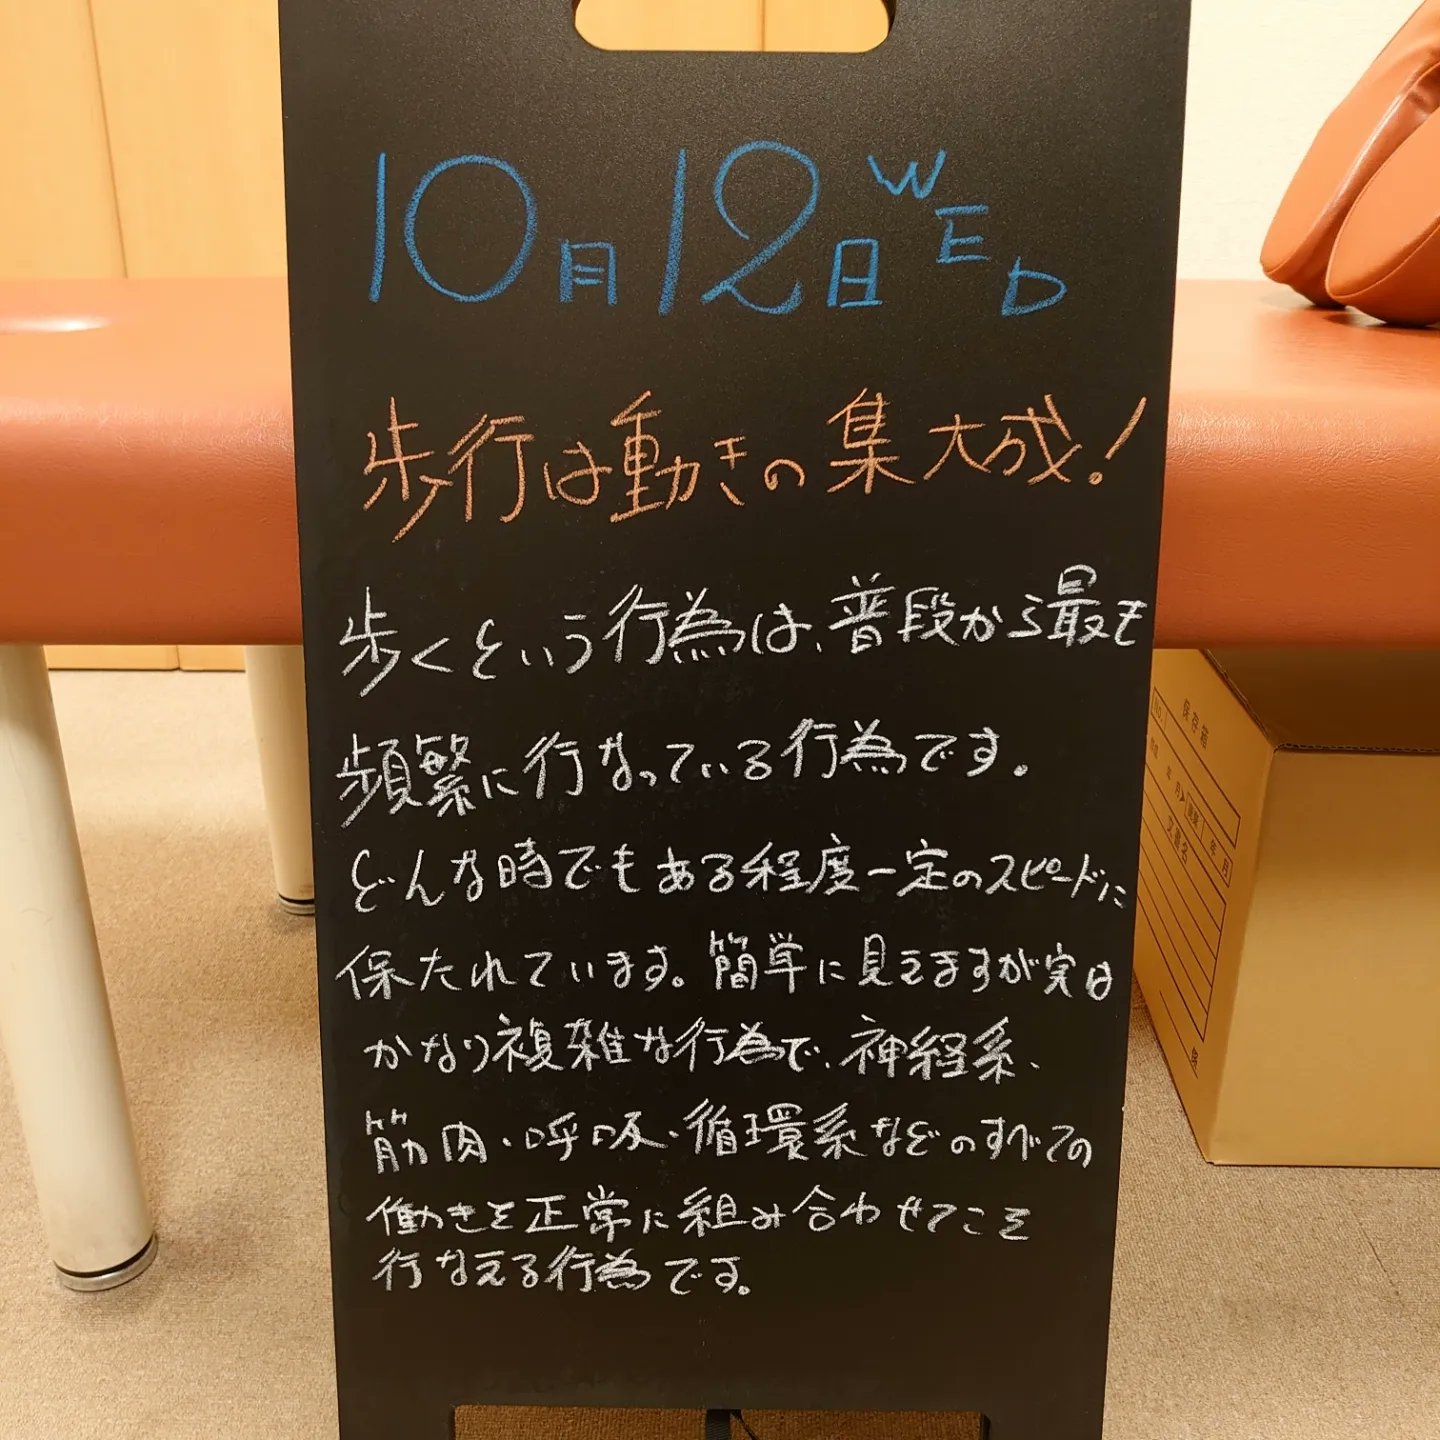 10月12日 WED
歩行は動きの集大成!
歩くという行為は、普段から最も
頻繁に行なっている行為です。
どんな時でもある程度一定のスピードに
保たれています。簡単に見えますが実は
かなり複雑な行為で、神経系、
筋肉・呼吸・循環系などのすべての
働きを正常に組み合わせてこそ
行なえる行為です。
保存箱
No.
年
月
廃棄
年
月
文書名